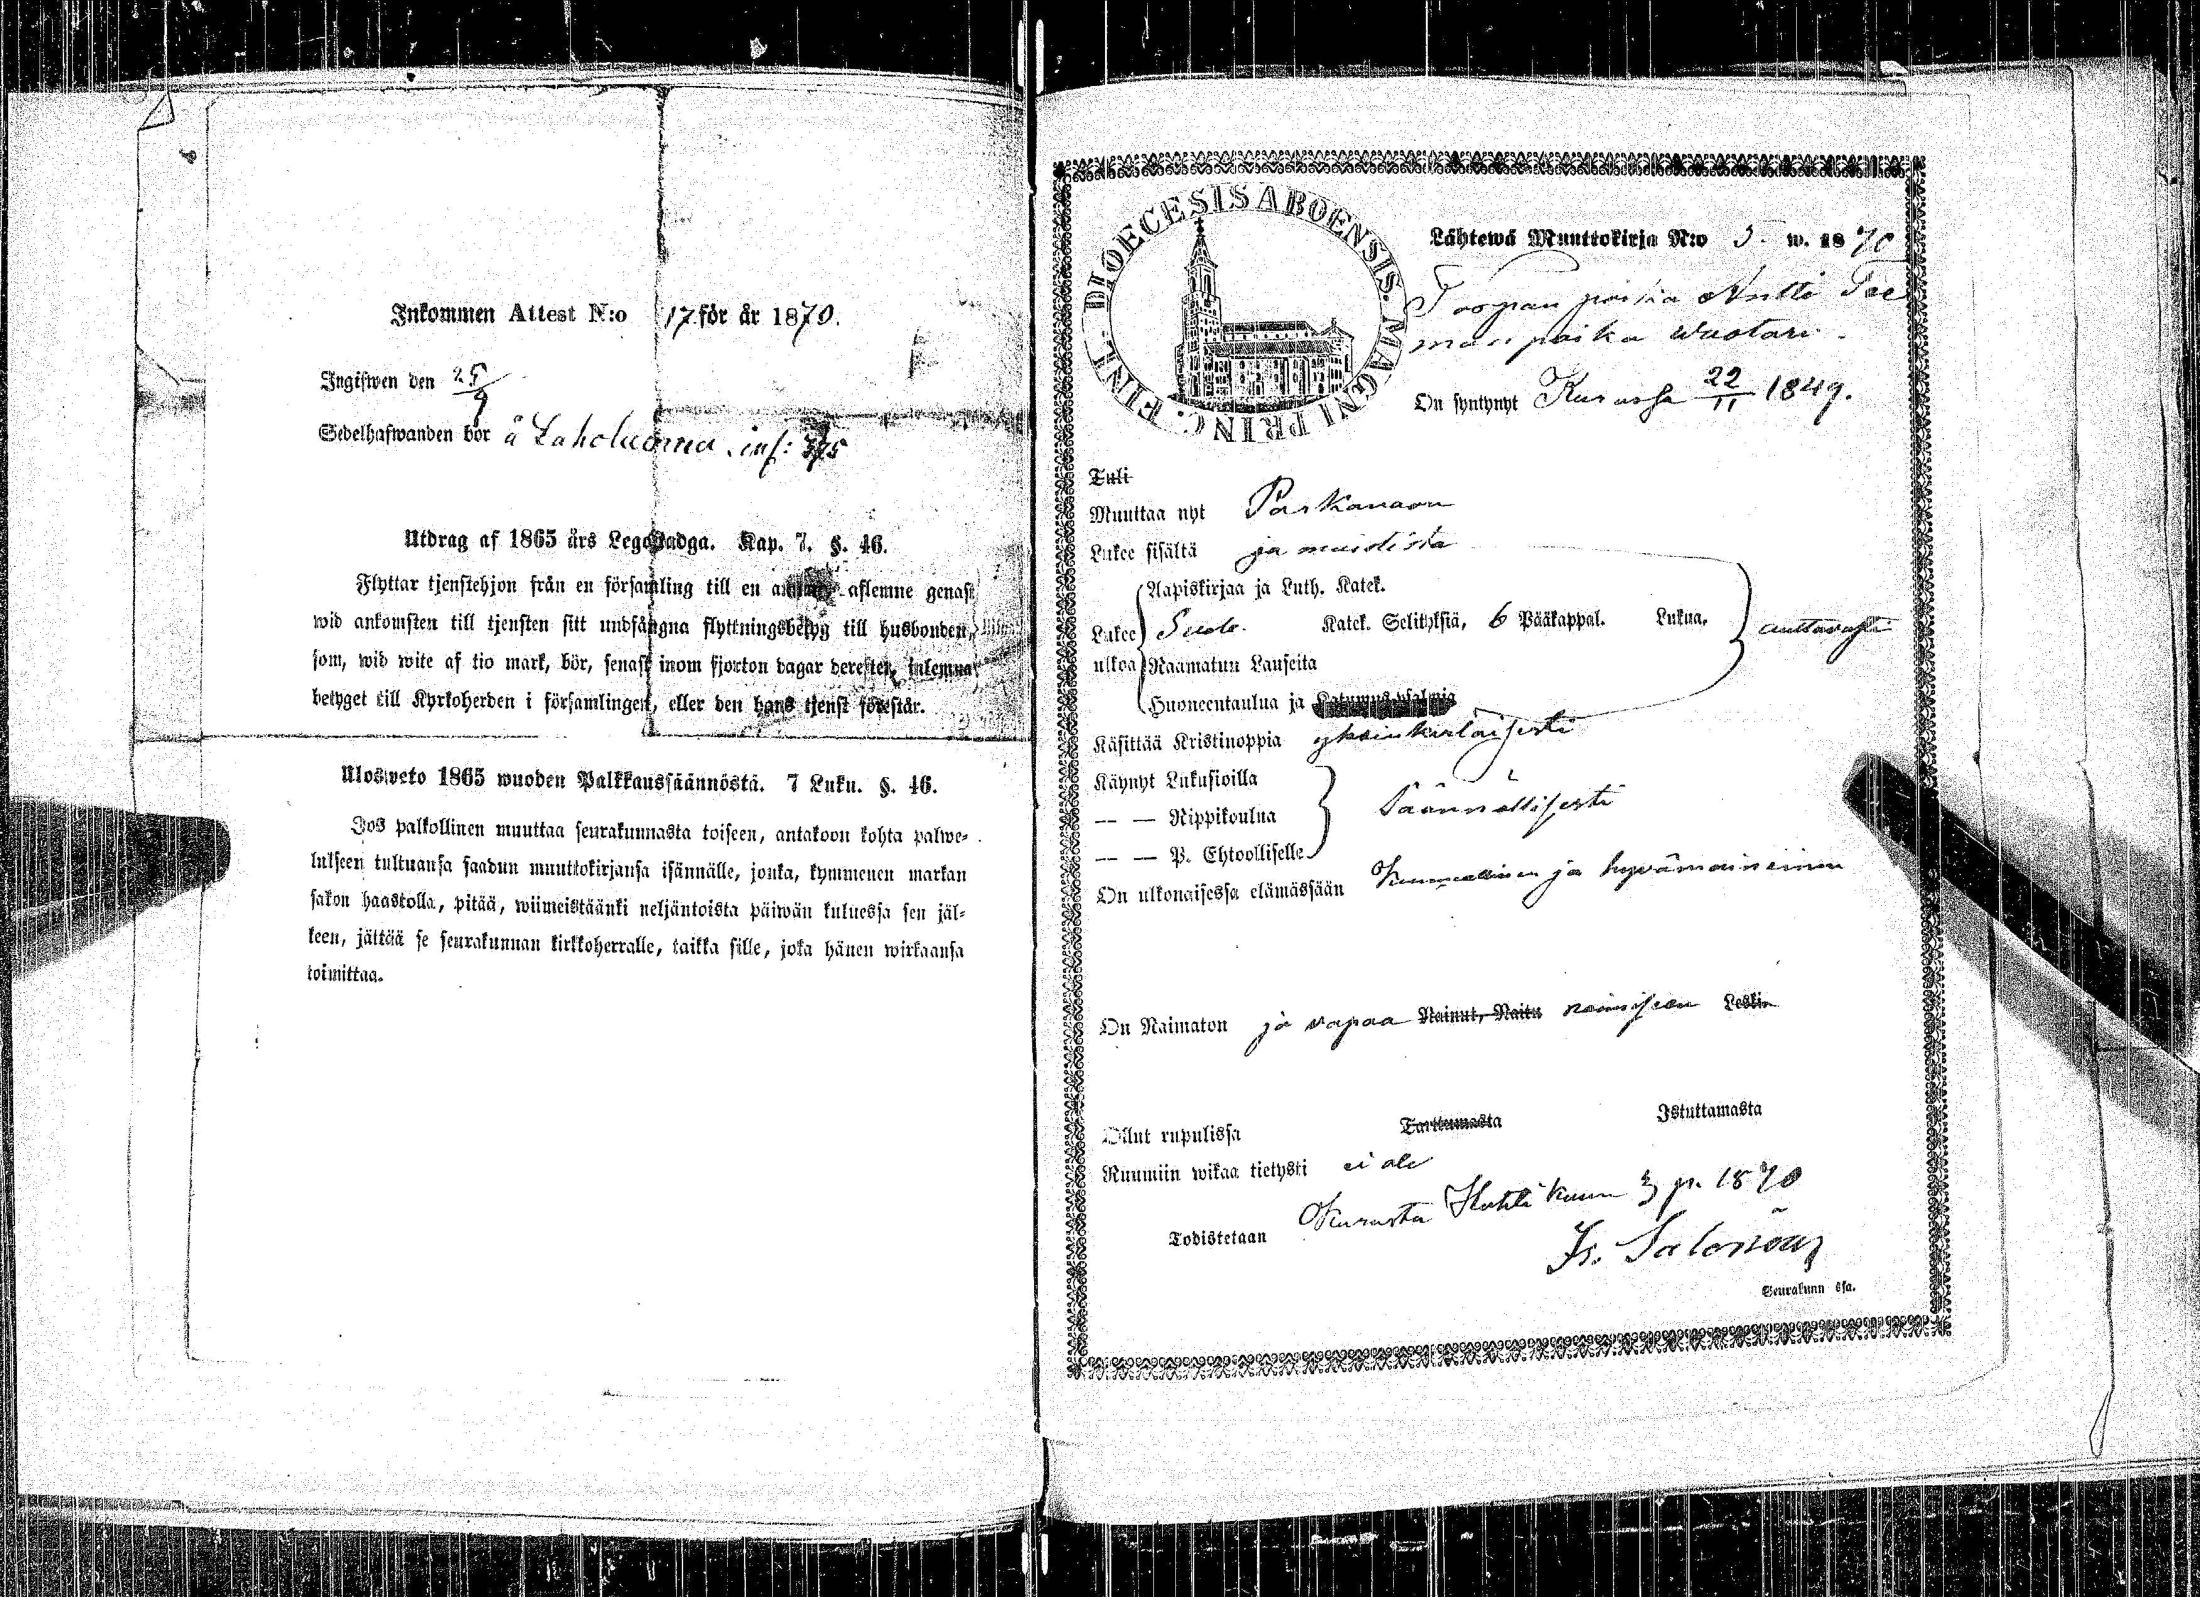 Inkommen Attest N:o 17 för år 1870.
Ingifwen den 25/9
Sedelhafwanden bor å Laholuoma, inf: 375
Utdrag af 1865 års Legostadga. Kap. 7. §. 46.
Flyttar tjenstehjon från en församling till en annan, aflemne genast
wid ankomsten till tjensten sitt undfångna flyttningsbetyg till husbonden,
som, wid wite af tio mark, bör, senast inom fjorton dagar derefter, inlemna
betyget till Kyrkoherden i församlingen, eller den hans tjenst förestår.
Ulosweto 1865 wuoden Palkkaussäännöstä. 7 Luku. §. 46.
Jos palkollinen muuttaa seurakunnasta toiseen, antakoon kohta palwe-
lukseen tultuansa saadun muuttokirjansa isännälle, jonka, kymmenen markan
sakon haastolla, pitää, wiimeistäänki neljäntoista päiwän kuluessa sen jäl-
keen, jättää se seurakunnan kirkkoherralle, taikka sille, joka hänen wirkaansa
toimittaa.
DIOECESIS ABOENSIS. MAGNI PRINC. FINL.
Lähtewä Muuttokirja N:o 5. w. 1870
Torpan poika Antti Tee
manpoika Wuotari.
On syntynyt Kurussa 22/11 1849.
Tuli
Muuttaa nyt Parkanoon
Lukee sisältä ja muistista
Aapiskirjaa ja Luth. Katek.
Lukee Katek. Selityksiä, 6 Pääkappal. Lukua, auttavasti
ulkoa Raamatun Lauseita
Huoneentaulua ja Katumuspsalmia
Käsittää Kristinoppia yksinkertaisesti
Käynyt Lukusioilla
— — Rippikoulua Säännöllisesti
— — P. Ehtoolliselle
On ulkonaisessa elämässään Kunniallinen ja hyvämaineinen
On Naimaton ja vapaa Nainut, Naitu naimiseen Leskin
Ollut rupulissa Tarttumasta Istuttamasta
Ruumiin wikaa tietysti ei ole
Todistetaan Kurusta Huhtikuun 3 p. 1870
Fr. Salonöus
Seurakunn ssa.